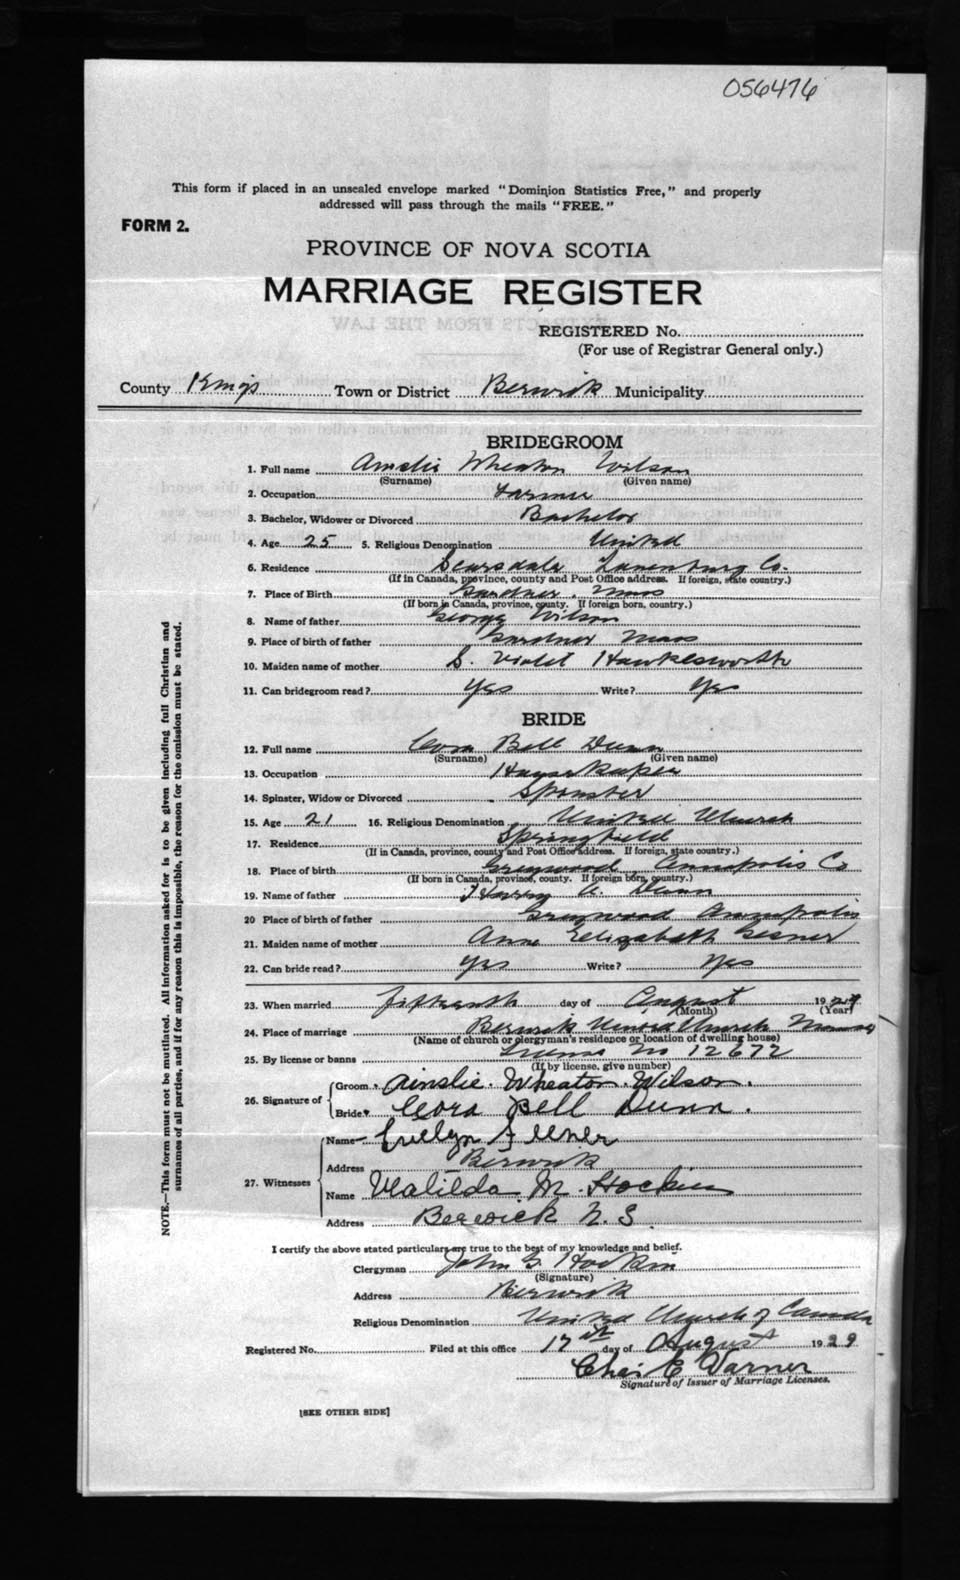 056476
This form if placed in an unsealed envelope marked "Dominion Statistics Free," and properly
addressed will pass through the mails "FREE."
FORM 2.
PROVINCE OF NOVA SCOTIA
MARRIAGE REGISTER
REGISTERED No.
(For use of Registrar General only.)
County Kings Town or District Berwick Municipality
BRIDEGROOM
1. Full name Ainslie Wheaton Wilson
(Surname) (Given name)
2. Occupation Farmer
3. Bachelor, Widower or Divorced Bachelor
4. Age 25 5. Religious Denomination United
6. Residence Scarsdale Lunenburg Co.
(If in Canada, province, county and Post Office address. If foreign, state country.)
7. Place of Birth Gardner, Mass
(If born in Canada, province, county. If foreign born, country.)
8. Name of father George Wilson
9. Place of birth of father Gardner Mass
10. Maiden name of mother S. Violet Hawkesworth
11. Can bridegroom read? Yes Write? Yes
BRIDE
12. Full name Cora Bell Dunn
(Surname) (Given name)
13. Occupation Housekeeper
14. Spinster, Widow or Divorced Spinster
15. Age 21 16. Religious Denomination United Church
17. Residence Springfield
(If in Canada, province, county and Post Office address. If foreign, state country.)
18. Place of birth Greywood Annapolis Co
(If born in Canada, province, county. If foreign born, country.)
19. Name of father Harry A. Dunn
20 Place of birth of father Greywood Annapolis
21. Maiden name of mother Anne Elizabeth Gesner
22. Can bride read? Yes Write? Yes
23. When married fifteenth day of August 1929
(Month) (Year)
24. Place of marriage Berwick United Church Manse
(Name of church or clergyman's residence or location of dwelling house)
25. By license or banns License No 12672
(If by license, give number)
26. Signature of Groom Ainslie Wheaton Wilson.
Bride Cora Bell Dunn.
27. Witnesses Name Evelyn
Address Berwick
Name Matilda M. Hockin
Address Berwick N.S.
I certify the above stated particulars are true to the best of my knowledge and belief.
Clergyman John G. Hockin
(Signature)
Address Berwick
Religious Denomination United Church of Canada
Registered No. Filed at this office 17th day of August 1929
Chas E Warner
Signature of Issuer of Marriage Licenses.
[SEE OTHER SIDE]
NOTE.—This form must not be mutilated. All information asked for is to be given including full Christian and
surnames of all parties, and if for any reason this is impossible, the reason for the omission must be stated.